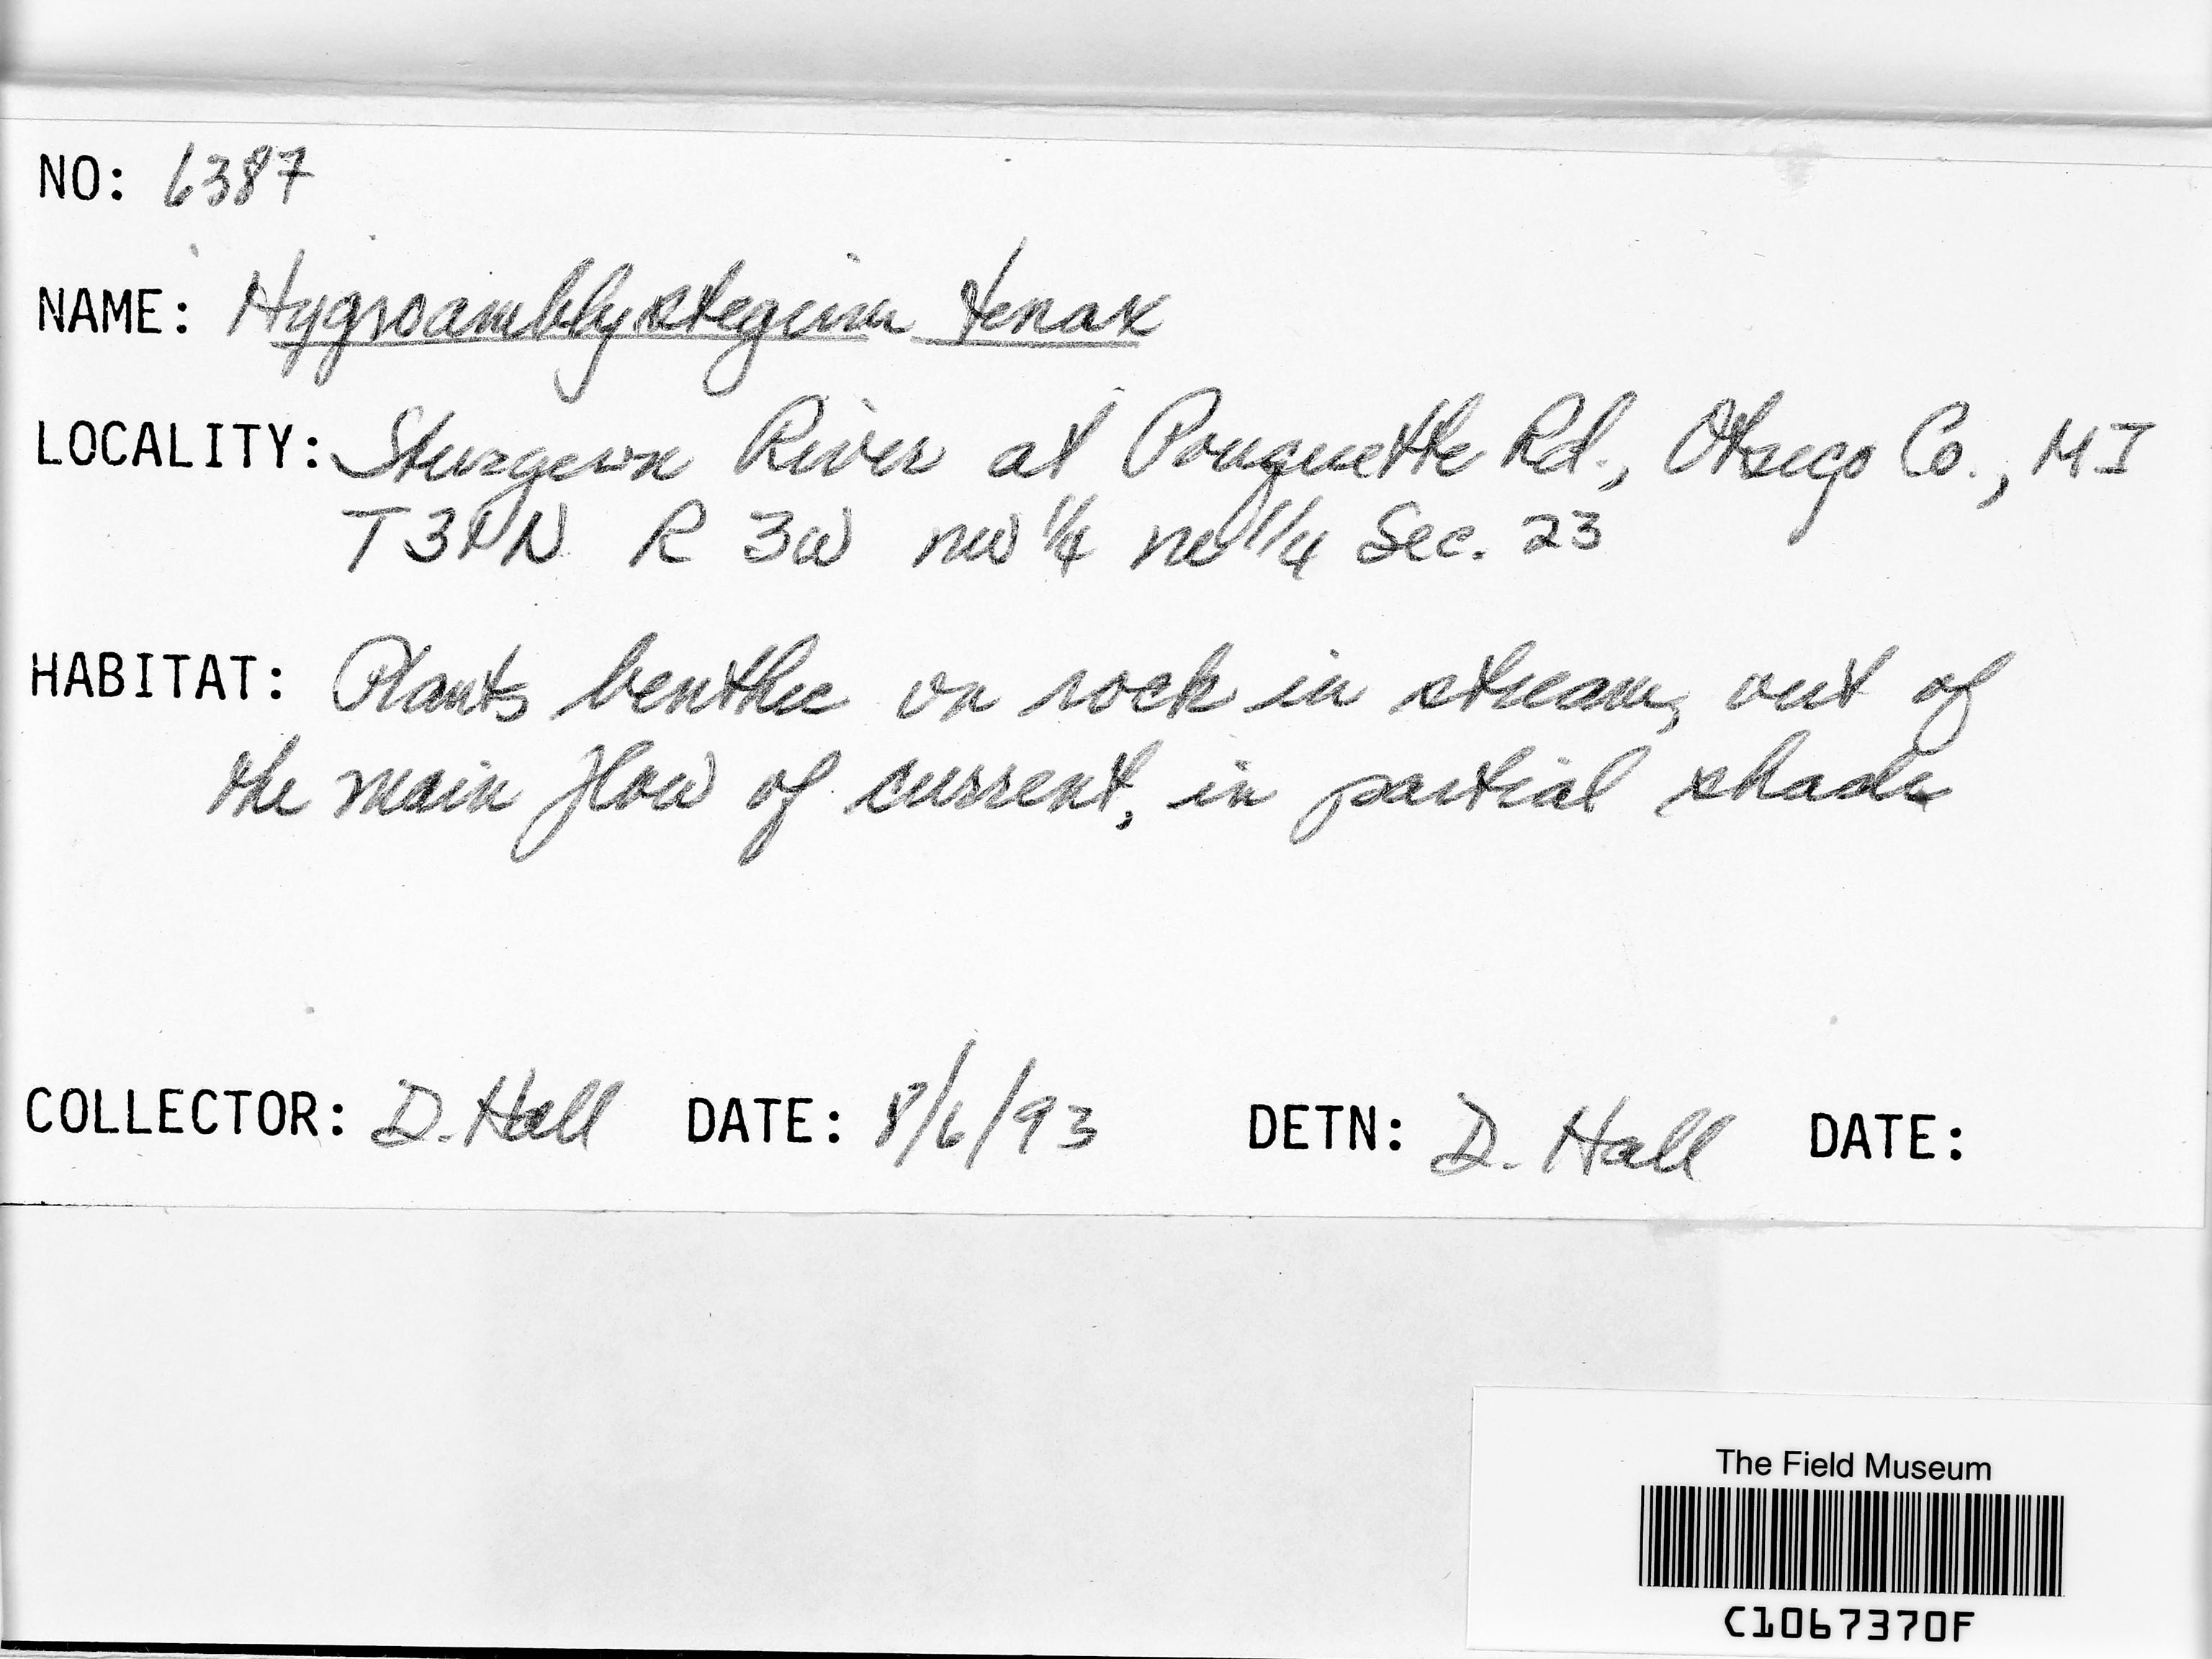 NO: 6387
NAME: Hygroamblystegium tenax
LOCALITY: Sturgeon River at Pouquette Rd., Otsego Co., MI
R 3W nw 1/4 ne 1/4 Sec. 23
HABITAT: Plants benthic on rock in stream, out of
the main flow of current, in partial shade
COLLECTOR: D. Hall DATE: 8/6/93 DETN: D. Hall DATE:
The Field Museum
C1067370F